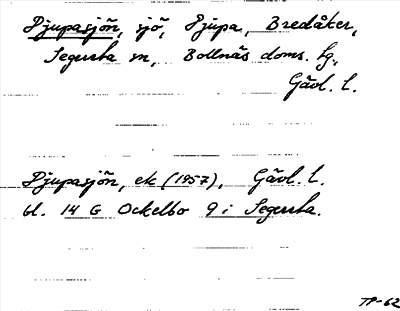 Djupasjön, sjö, Djupa, Bredåker,
Segersta sn, Bollnäs doms. hg,
Gävl. l.
Djupasjön, ek (1957), Gävl. l.
bl. 14 G Ockelbo 9 i Segersta.
TP-62